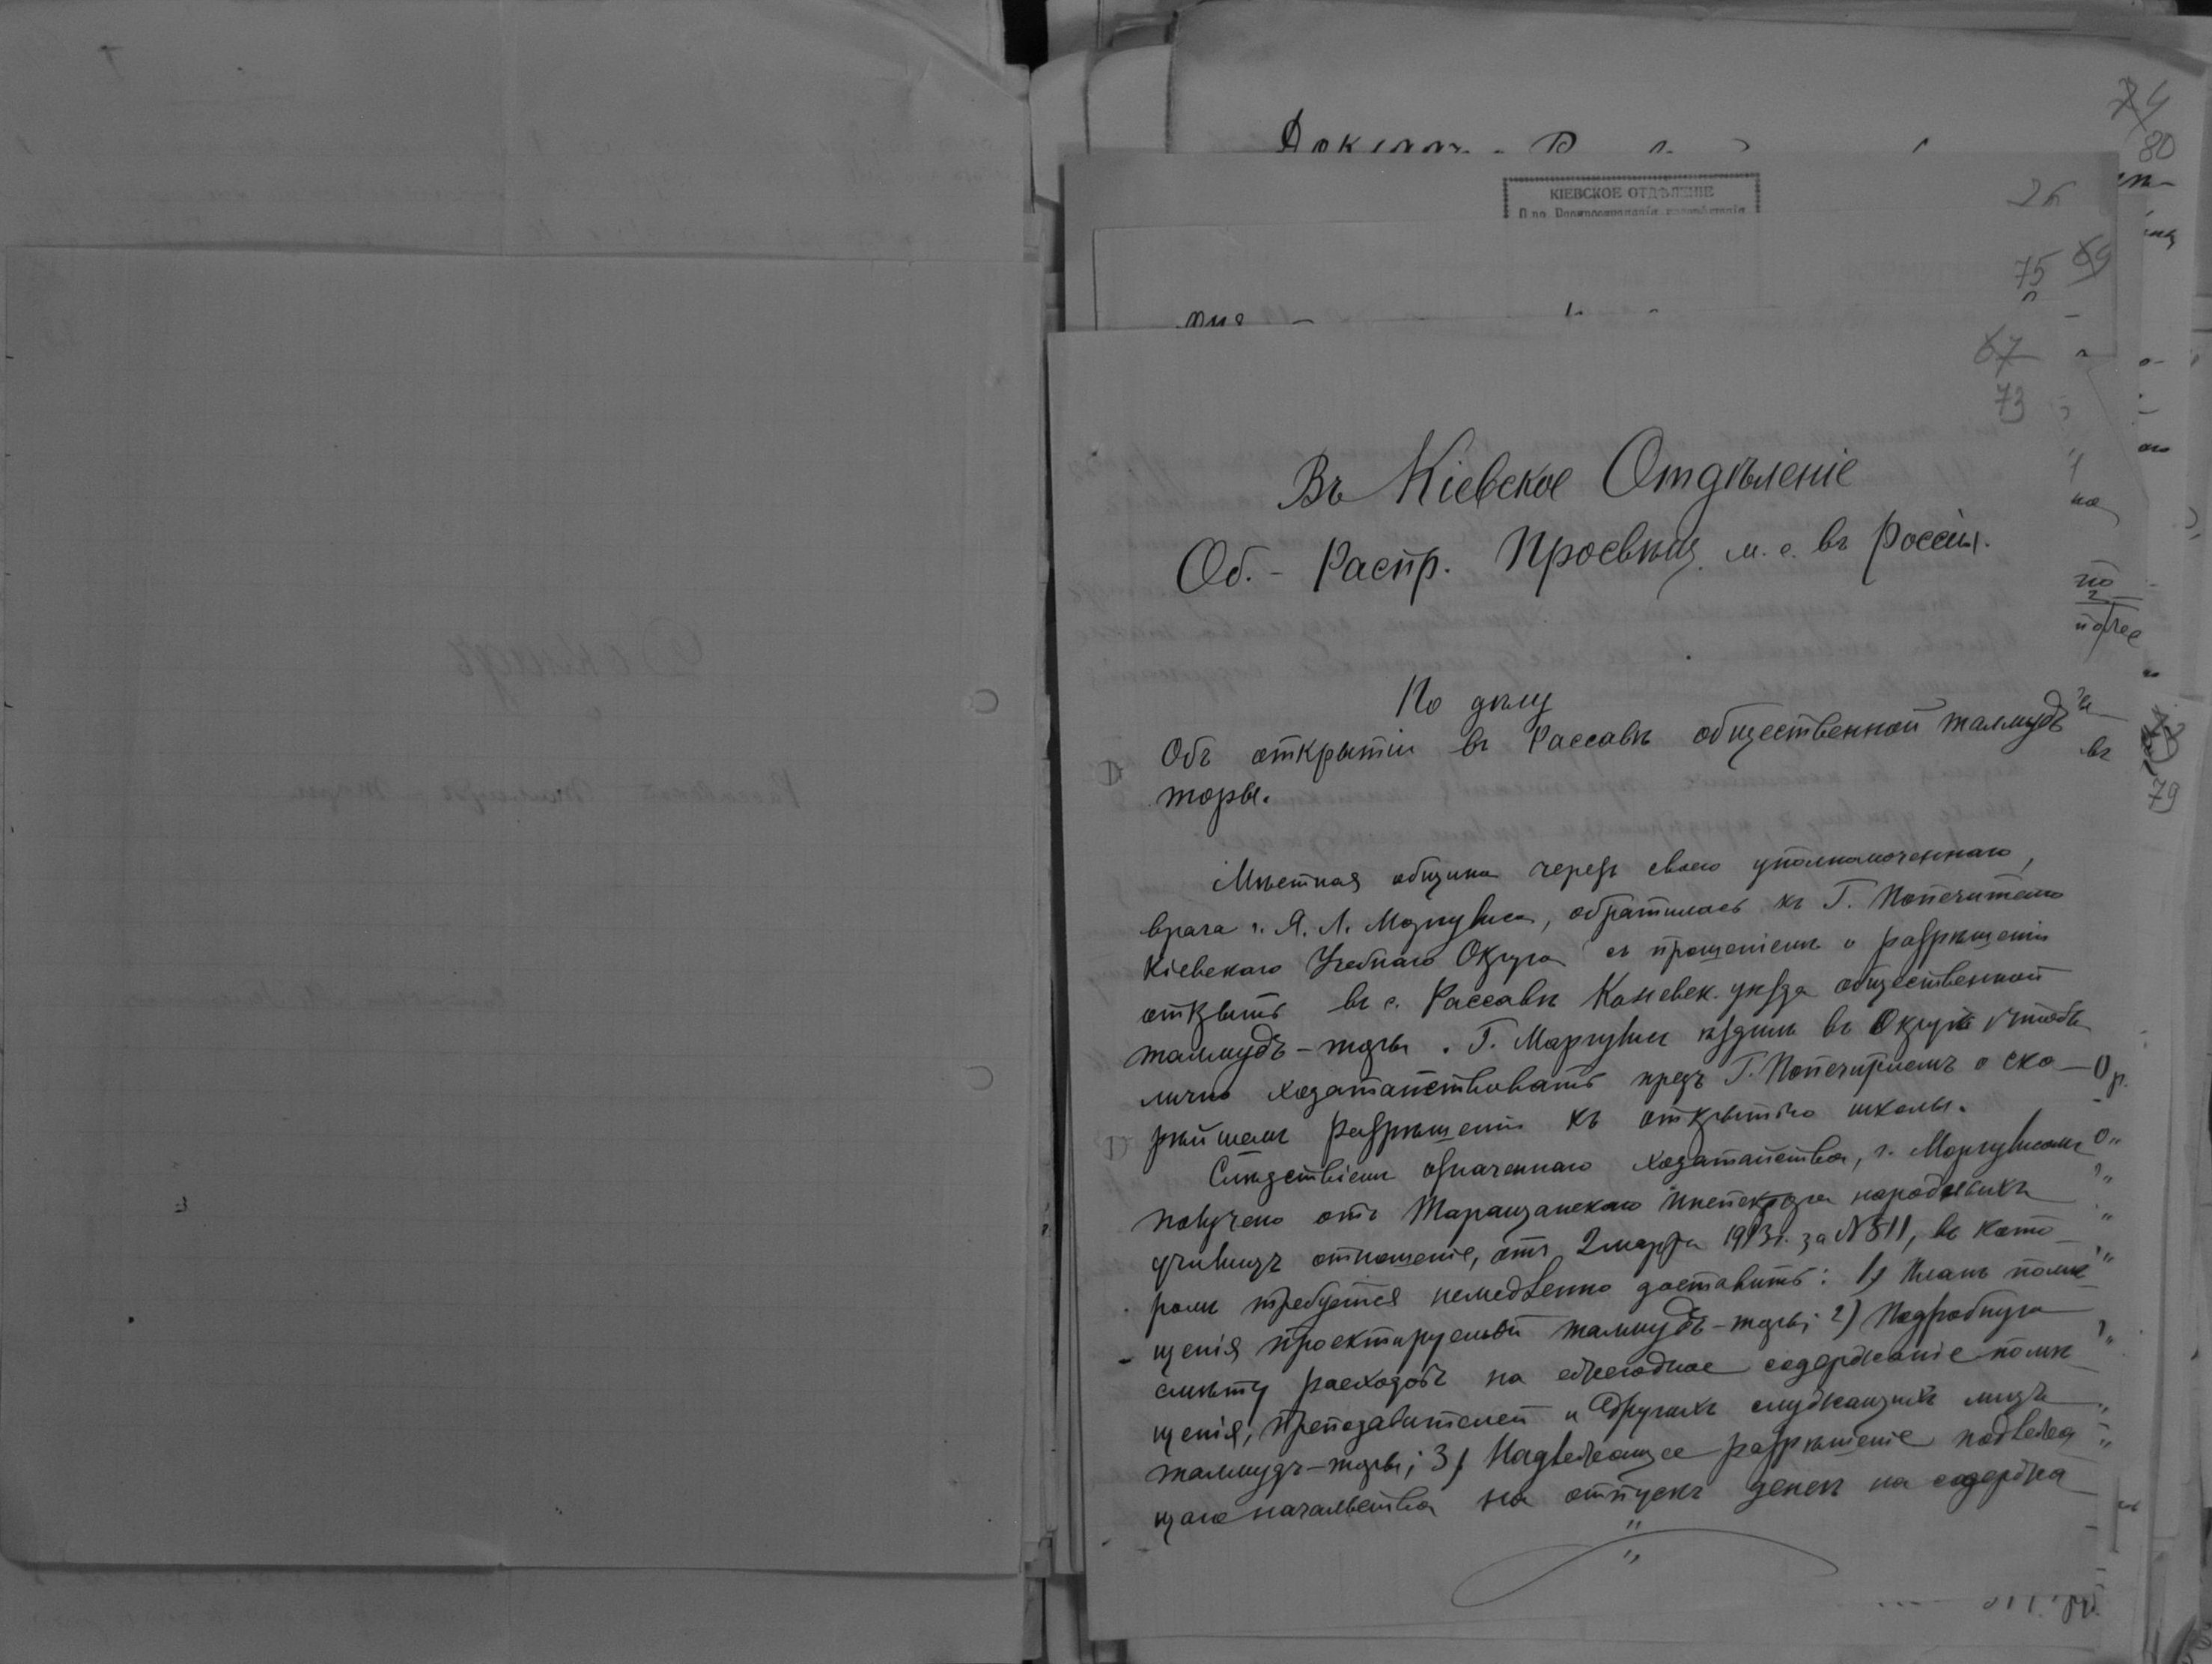 74
80
КІЕВСКОЕ ОТДѢЛЕНІЕ
26
75 69
67
73
Въ Кіевское Отдѣленіе
Об.- Распр. Просвѣщ. м. е. въ Россіи.
По дѣлу
Объ открытіи въ Рассавѣ общественной талмудъ
торы.
79
Мѣстная община черезъ своего уполномоченнаго,
врача г. Я. Л. Моргулиса, обратилась къ Г. Попечителю
Кіевскаго Учебнаго Округа съ прошеніемъ о разрѣшеніи
открыть въ с. Рассавѣ Каневск. уѣзда общественной
талмудъ-торы. Г. Маргулис ѣздилъ въ Округъ чтобы
лично ходатайствовать предъ Г. Попечителемъ о ско-
рѣйшемъ разрѣшеніи къ открытію школы.
Слѣдствіемъ означеннаго ходатайства, г. Моргулисомъ
получено отъ Таращанскаго Инспектора народныхъ
училищъ отношеніе, отъ 2 марта 1913 г. за № 511, въ кото-
ромъ требуется немедленно доставить: 1) Планъ помѣ-
щенія проектируемой талмудъ-торы; 2) Подробную
смѣту расходовъ на ежегодное содержаніе помѣ-
щенія, преподавателей и другихъ служащихъ лицъ
талмудъ-торы; 3) Надлежащее разрѣшеніе подлежа-
щаго начальства на отпускъ денегъ на содержа-